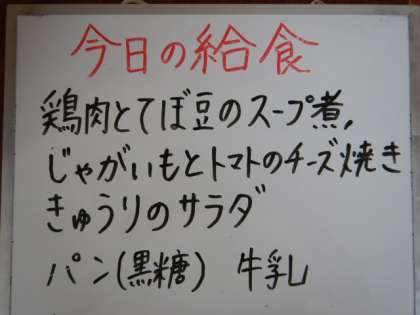 今日の給食
鶏肉とてぼ豆のスープ煮,
じゃがいもとトマトのチーズ焼き
きゅうりのサラダ
パン(黒糖) 牛乳